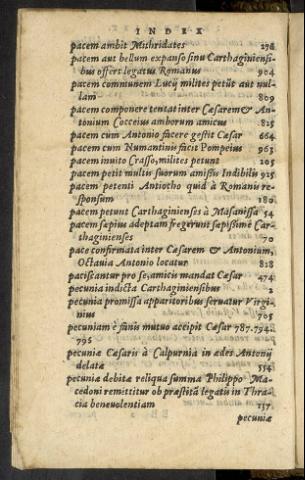 INDEX
pacem ambit Mithridates 276
pacem aut bellum expanso sinu Carthaginiensi-
bus offert legatus Romanus 904
pacem communem Lucij milites petūt aut nul-
lam 809
pacem componere tentat inter Cæsarem & An-
tonium Cocceius amborum amicus 815
pacem cum Antonio facere gestit Cæsar 664
pacem cum Numantinis facit Pompeius 963
pacem inuito Crasso, milites petunt 205
pacem petit multis suorum amissis Indibilis 925
pacem petenti Antiocho quid à Romanis re-
sponsum 180
pacem petunt Carthaginienses à Masanissa 54
pacem sæpius adeptam fregerunt sæpissimè Car-
thaginienses 70
pace confirmata inter Cæsarem & Antonium,
Octauia Antonio locatur 818
paciscantur pro se, amicis mandat Cæsar 474
pecunia indicta Carthaginensibus 2
pecunia promissa apparitoribus seruatur Virgi-
nius 705
pecuniam è fanis mutuo accipit Cæsar 787.794.
795
pecuniæ Cæsaris à Calpurnia in ædes Antonij
delatæ 554
pecuniæ debitæ reliqua summa Philippo Ma-
cedoni remittitur ob præstitā legatis in Thra-
cia beneuolentiam 157
pecuniæ